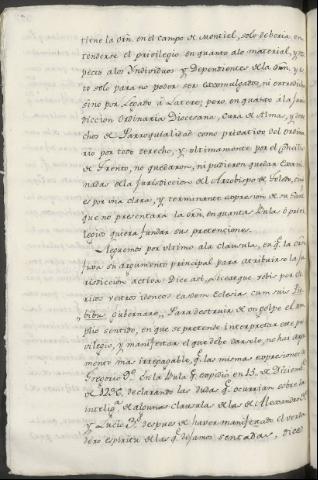 tiene la Orn. en el campo de Montiel, solo deberia en
tenderse el privilegio en quanto alo material, y res
pecto alos Yndividuos y Dependientes dela Orn. y es
to solo para no poder ser excomulgados, ni entredichos
sino por Legado à Latere; pero en quanto a la Juris
diccion Ordinaria Diocesana, Cura de Almas, y dere
chos de Parroquialidad como privativa del Ordina
rio por todo derecho, y ultimamente por el Concilio
de Trento, no quedaron, ni pudieron quedar
dela Jurisdiccion del Arzobispo de Toledo, sino
es por via clara, y terminante expresion de su
que no presentará la Orn. en quanta Bula ò privi
legio quiera fundar sus pretenciones.
Lleguemos por ultimo ala clausula, en q.e la Orn.
su argumento principal para atribuirse la Ju
risdiccion activa Dice asi, Liceatque vobis per Cle
ricos vestros idoneos easdem Eclesias cum suis
Gubernare. Para destruir de un golpe el am
plio sentido, en que se pretende interpretar este pri
vilegio, y manifestar el que debe darsele, no hai argu
mento mas irrefragable q.e las mismas expresiones de
Gregorio 9.º En la Bula q.e expedió en 15. de Diciembre
de 1236. declarando las dudas q.e ocurrian sobre la
intelig.a de algunas clausulas de las de Alexandro 3.º
y Lucio 3.º despues de haver manifestado el verda
dero espiritu de las q.e dejamos sentadas, dice